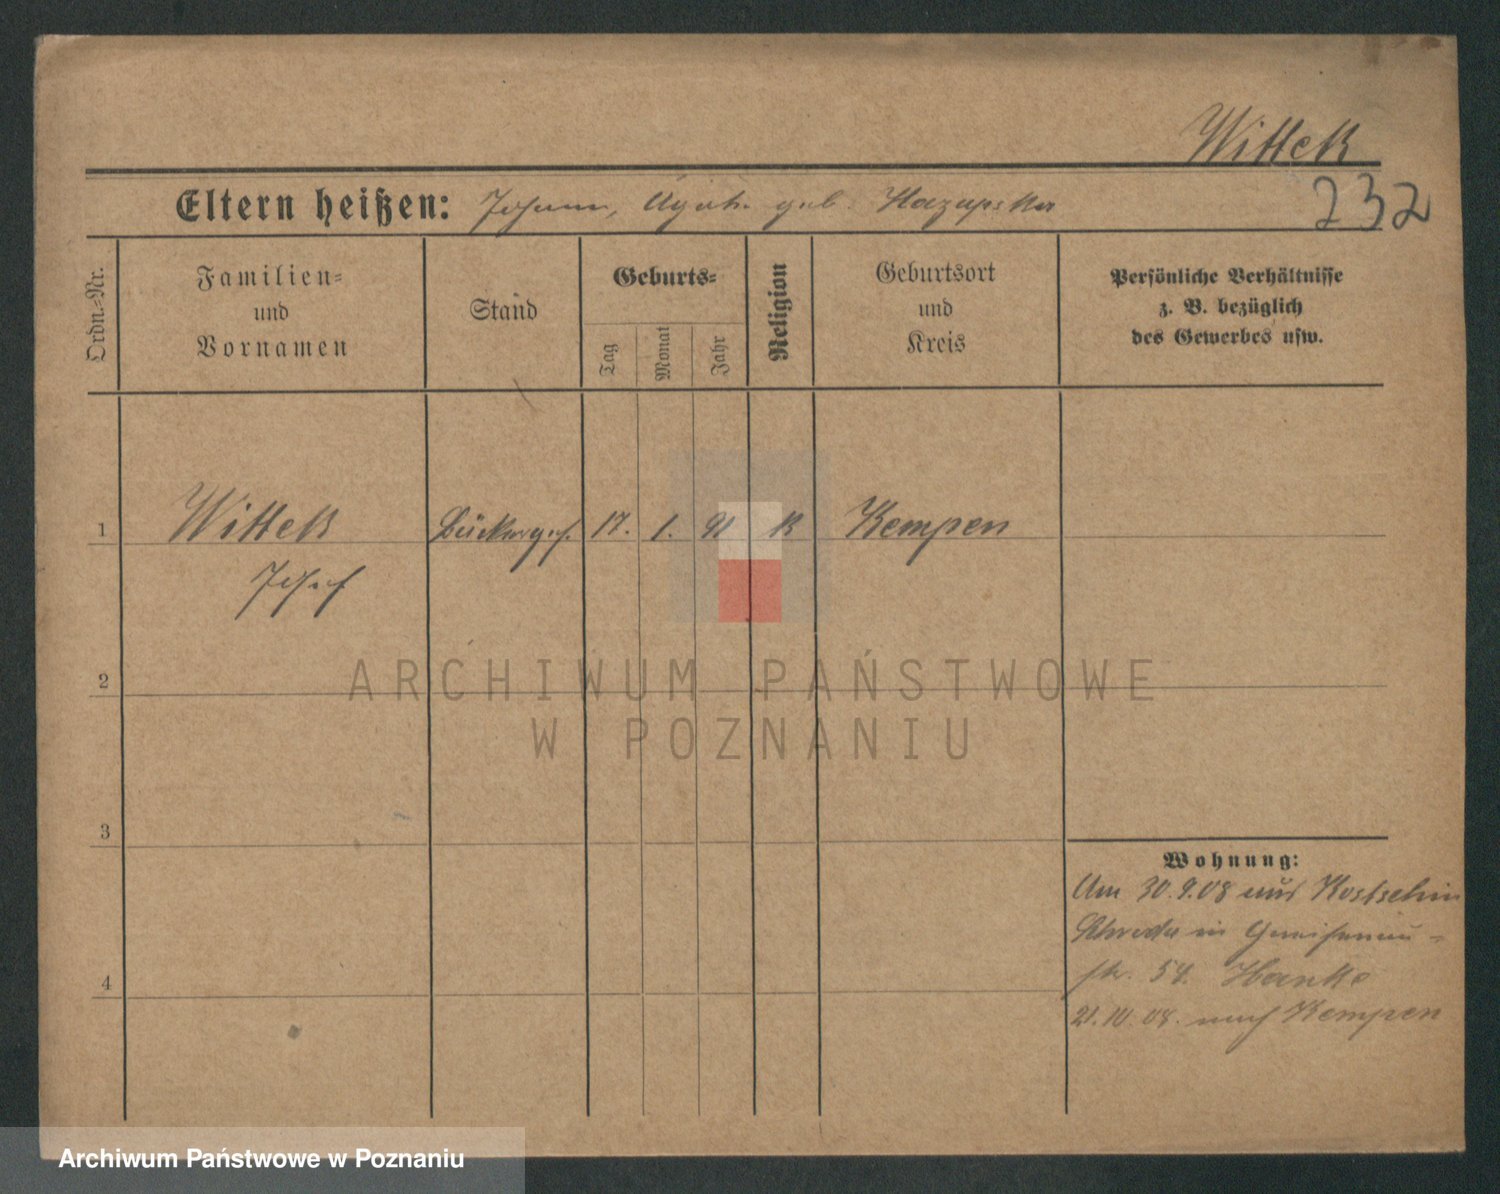 Wittek
232
Eltern heißen: Johann, Agath. geb. Hazapska
Ordn.=Nr.
Familien=
und
Vornamen
Stand
Geburts=
Tag
Monat
Jahr
Religion
Geburtsort
und
Kreis
Persönliche Verhältnisse
z. B. bezüglich
des Gewerbes usw.
1
Wittek Bäckerges. 17. 1. 91 K Kempen
Josef
2
3
4
ARCHIWUM PAŃSTWOWE
W POZNANIU
Wohnung:
Am 30.9.08 aus Kostschin
Schroda in Gneisenau-
str. 54. Hanke
21.10.08. nach Kempen
Archiwum Państwowe w Poznaniu